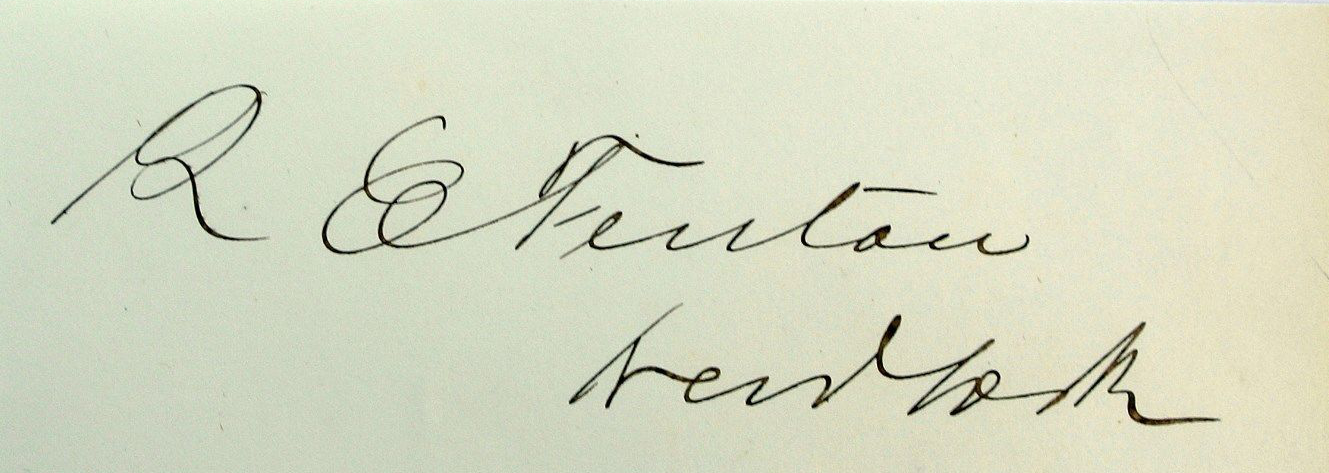 R E Fenton
New York